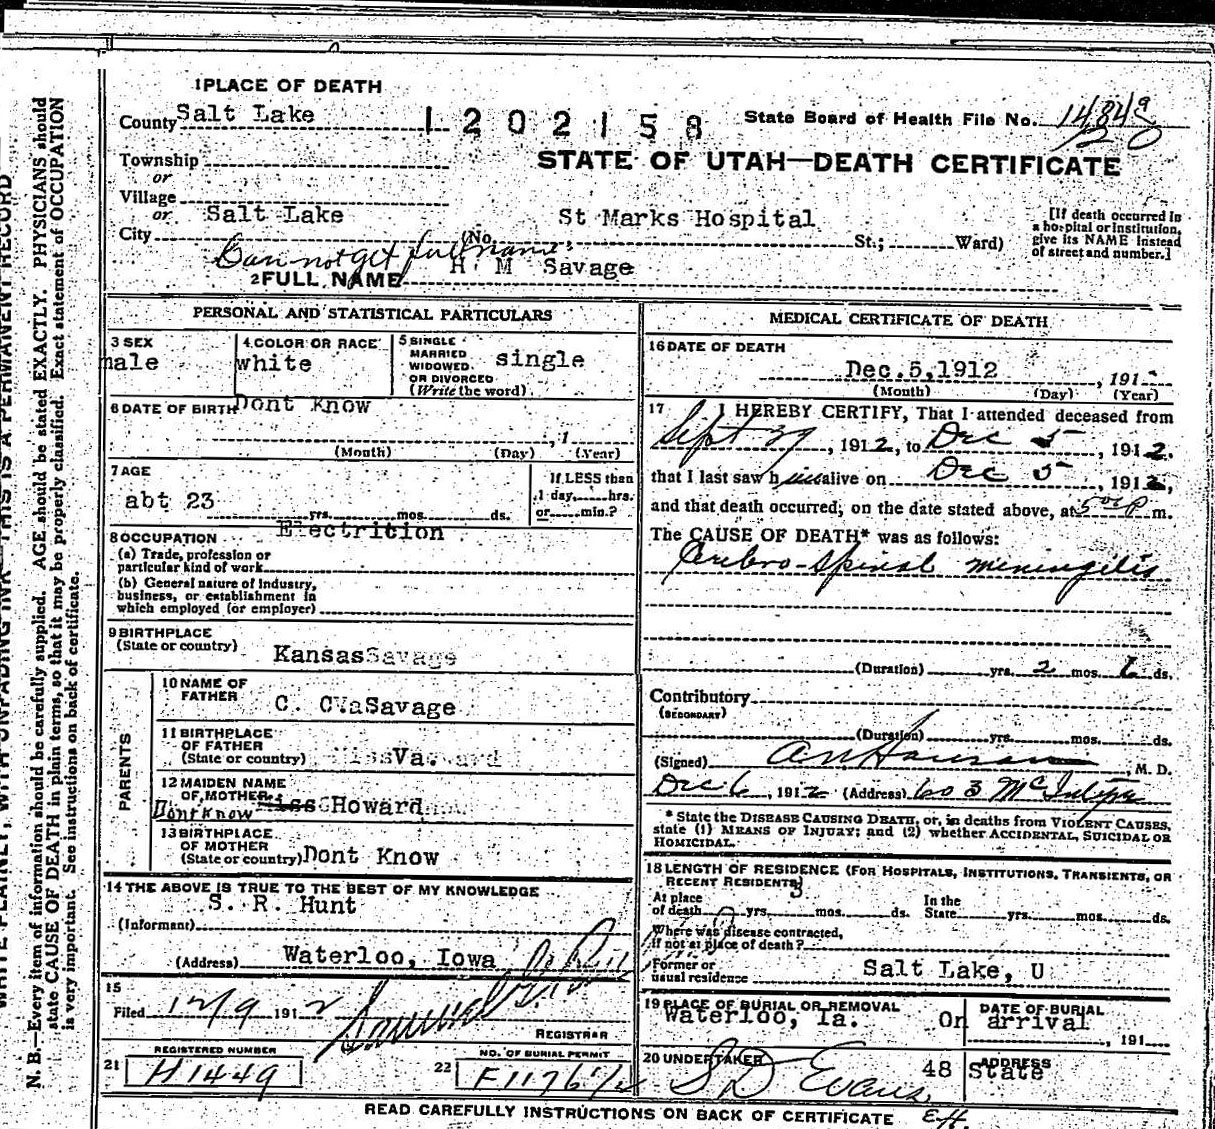 1 PLACE OF DEATH
County Salt Lake
1202158
State Board of Health File No.
STATE OF UTAH—DEATH CERTIFICATE
Township
or
Village
or Salt Lake
City
(No. St Marks Hospital St.; Ward)
[If death occurred in a hospital or institution, give its NAME instead of street and number.]
Can not get full name
2 FULL NAME H M Savage
PERSONAL AND STATISTICAL PARTICULARS
3 SEX
male
4 COLOR OR RACE
white
5 SINGLE
MARRIED
WIDOWED
OR DIVORCED
(Write the word)
single
6 DATE OF BIRTH Dont Know
, 1
(Month) (Day) (Year)
7 AGE
abt 23
yrs. mos. ds.
If LESS than
1 day, hrs.
or min.?
8 OCCUPATION Electrition
(a) Trade, profession or
particular kind of work
(b) General nature of industry,
business, or establishment in
which employed (or employer)
9 BIRTHPLACE
(State or country) Kansas Savage
PARENTS
10 NAME OF
FATHER
C. C. Savage
11 BIRTHPLACE
OF FATHER
(State or country) Va.
12 MAIDEN NAME
OF MOTHER Howard
Dont know
13 BIRTHPLACE
OF MOTHER
(State or country) Dont Know
14 THE ABOVE IS TRUE TO THE BEST OF MY KNOWLEDGE
S. R. Hunt
(Informant)
(Address) Waterloo, Iowa
15
Filed 12/9 1912
REGISTRAR
REGISTERED NUMBER
21 H1449
NO. OF BURIAL PERMIT
22
MEDICAL CERTIFICATE OF DEATH
16 DATE OF DEATH
Dec.5,1912 , 191
(Month) (Day) (Year)
17 I HEREBY CERTIFY, That I attended deceased from
Sept 29, 1912, to Dec 5, 1912.
that I last saw him alive on Dec 5, 1912,
and that death occurred, on the date stated above, at 5 00 P m.
The CAUSE OF DEATH* was as follows:
Cerebro-Spinal meningitis
(Duration) yrs. 2 mos. 6 ds.
Contributory
(SECONDARY)
(Duration) yrs. mos. ds.
(Signed) , M. D.
Dec 6, 1912 (Address) 603 McIntyre
* State the DISEASE CAUSING DEATH, or, in deaths from VIOLENT CAUSES,
state (1) MEANS OF INJURY; and (2) whether ACCIDENTAL, SUICIDAL OR
HOMICIDAL.
18 LENGTH OF RESIDENCE (FOR HOSPITALS, INSTITUTIONS, TRANSIENTS, OR
RECENT RESIDENTS)
At place
of death yrs. mos. ds.
In the
State yrs. mos. ds.
Where was disease contracted,
if not at place of death?
Former or
usual residence Salt Lake, U
19 PLACE OF BURIAL OR REMOVAL
Waterloo, Ia.
DATE OF BURIAL
On arrival
, 191
20 UNDERTAKER
S D Evans
ADDRESS
48 State
READ CAREFULLY INSTRUCTIONS ON BACK OF CERTIFICATE
N. B.—Every item of information should be carefully supplied. AGE should be stated EXACTLY. PHYSICIANS should
state CAUSE OF DEATH in plain terms, so that it may be properly classified. Exact statement of OCCUPATION
is very important. See instructions on back of certificate.
WRITE PLAINLY, WITH UNFADING INK—THIS IS A PERMANENT RECORD